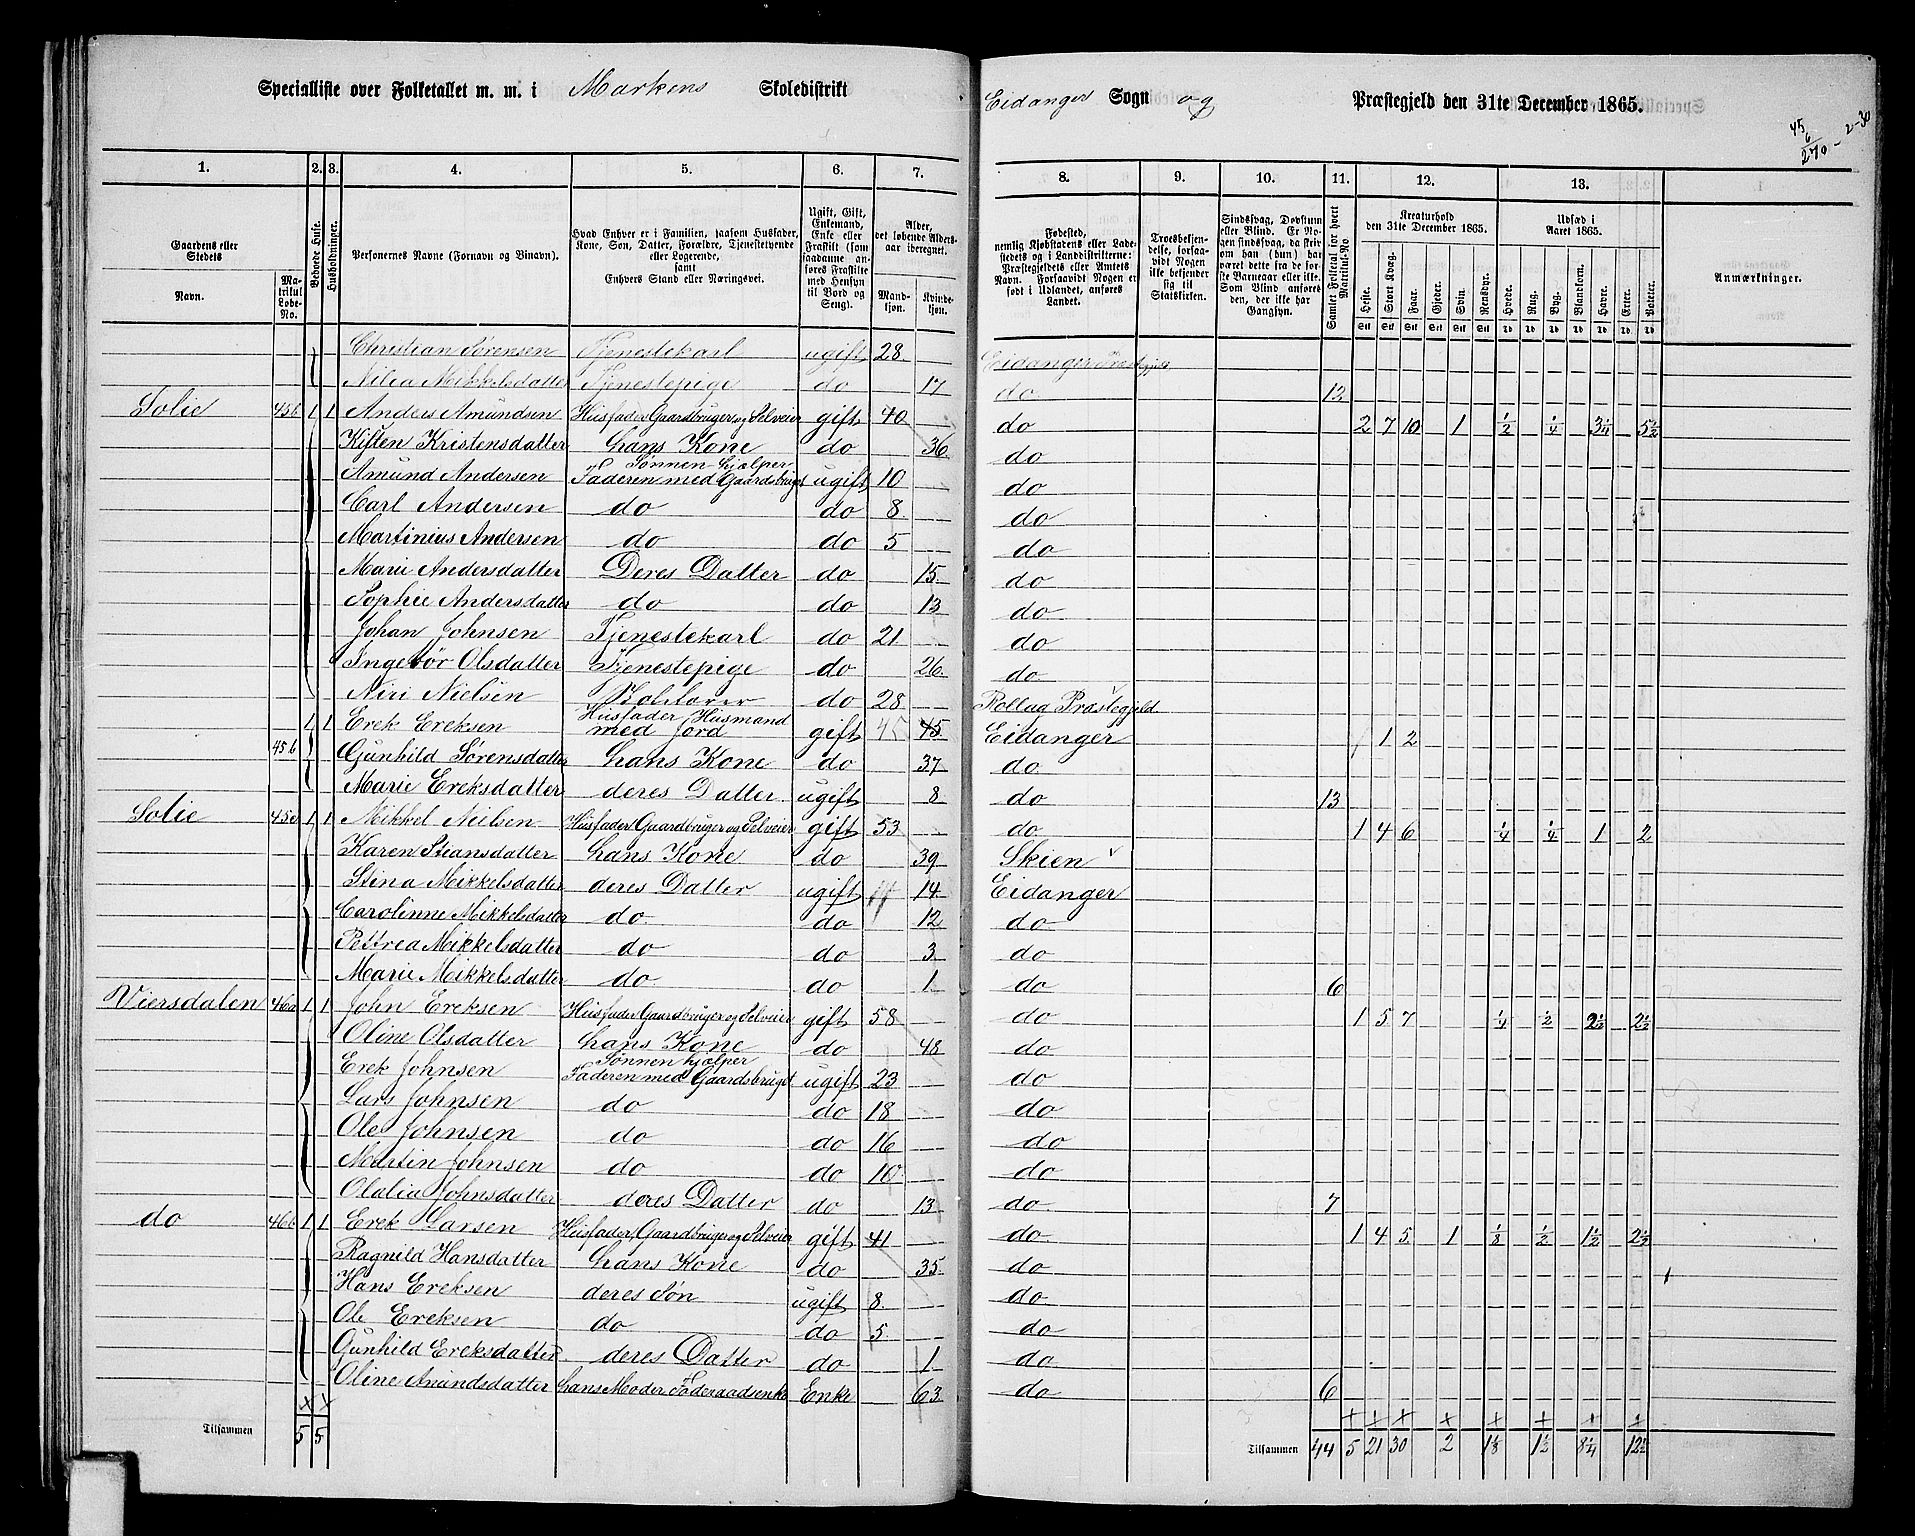 Specialliste over Folketallet m. m. i Markens Skoledistrikt Eidanger Sogn og Præstegjeld den 31te December 1865.
45
6
270 - 2-30
1. 2. 3. 4. 5. 6. 7. 8. 9. 10. 11. 12. 13.
Gaardens eller Stedets
Navn.
Matrikul Løbe-No.
Beboede Huse.
Husholdninger.
Personernes Navne (Fornavn og Binavn).
Hvad Enhver er i Familien, saasom Husfader, Kone, Søn, Datter, Forældre, Tjenestetyende eller Logerende, samt Enhvers Stand eller Næringsvei.
Ugift, Gift, Enkemand, Enke eller Fraskilt (som saadanne anføres Fraskilte med Hensyn til Bord og Seng).
Alder, det løbende Alders-aar iberegnet.
Mandkjøn.
Kvindekjøn.
Fødested, nemlig Kjøbstadens eller Ladestedets og i Landdistrikterne: Præstegjeldets eller Amtets Navn. Forsaavidt Nogen er født i Udlandet, anføres Landet.
Troesbekjendelse, forsaavidt Nogen ikke bekjender sig til Statskirken.
Sindssvag, Døvstum eller Blind. Er Nogen sindssvag, da skrives om han (hun) har været dette fra de første Barneaar eller ikke. Som Blind anføres den, der ikke har Gangsyn.
Samlet Folketal for hvert Matrikul-No.
Kreaturhold den 31te December 1865.
Heste. Stort Kvæg. Faar. Gjeder. Svin. Rensdyr.
Udsæd i Aaret 1865.
Hvede. Rug. Byg. Blandkorn. Havre. Erter. Poteter.
Anmærkninger.
Christian Sørensen Tjenestekarl ugift 28 Eidanger Præstegjeld
Nilea Mikkelsdatter Tjenestepige do 17 do 12
Solie 45b 1 1 Anders Amundsen Husfader Gaardbruger og Selveier gift 40 do 2 7 10 1 1/2 1/4 3 1/4 5 1/2
Kisten Kristensdatter hans Kone do 36 do
Amund Andersen Sønnen hjælper Faderen med Gaardsbruget ugift 10 do
Carl Andersen do do 8 do
Martinius Andersen do do 5 do
Marie Andersdatter Deres Datter do 15 do
Sophie Andersdatter do do 13 do
Johan Johnsen Tjenestekarl do 21 do
Ingebör Olsdatter Tjenestepige do 26 do
Niri Nielsen do 28 Rollag Præstegjeld
1 1 Erek Ereksen Husfader Husmand med Jord gift 45 45 Eidanger 1 2
45b Gunhild Sørensdatter hans Kone do 37 do
Marie Ereksdatter deres Datter ugift 8 do 13
Solie 45c 1 1 Mikkel Nielsen Husfader Gaardbruger og Selveier gift 53 do 1 4 6 1/4 1/4 1 2
Karen Stiansdatter hans Kone do 39 Skien
Stina Mikkelsdatter deres Datter ugift 14 Eidanger
Carolinne Mikkelsdatter do do 12 do
Pettrea Mikkelsdatter do do 3 do
Marie Mikkelsdatter do do 1 do 6
Viersdalen 46a 1 1 John Ereksen Husfader Gaardbruger og Selveier gift 58 do 1 5 7 1/4 1/2 2 1/2 2 1/2
Oline Olsdatter hans Kone do 48 do
Erek Johnsen Sønnen hjælper Faderen med Gaardsbruget ugift 23 do
Lars Johnsen do do 18 do
Ole Johnsen do do 16 do
Martin Johnsen do do 10 do
Olalia Johnsdatter deres Datter do 13 do 7
do 46b 1 1 Erek Larsen Husfader Gaardbruger og Selveier gift 41 do 1 4 5 1 1/8 1/2 1 1/2 2 1/2
Ragnild Hansdatter hans Kone do 35 do
Hans Ereksen deres Søn ugift 8 do
Ole Ereksen do do 5 do
Gunhild Ereksdatter deres Datter do 1 do
Oline Amundsdatter hans Moder Enke 63 do 6
Tilsammen 5 5 Tilsammen 44 5 21 30 2 1 1/8 1 1/2 8 1/4 12 1/2